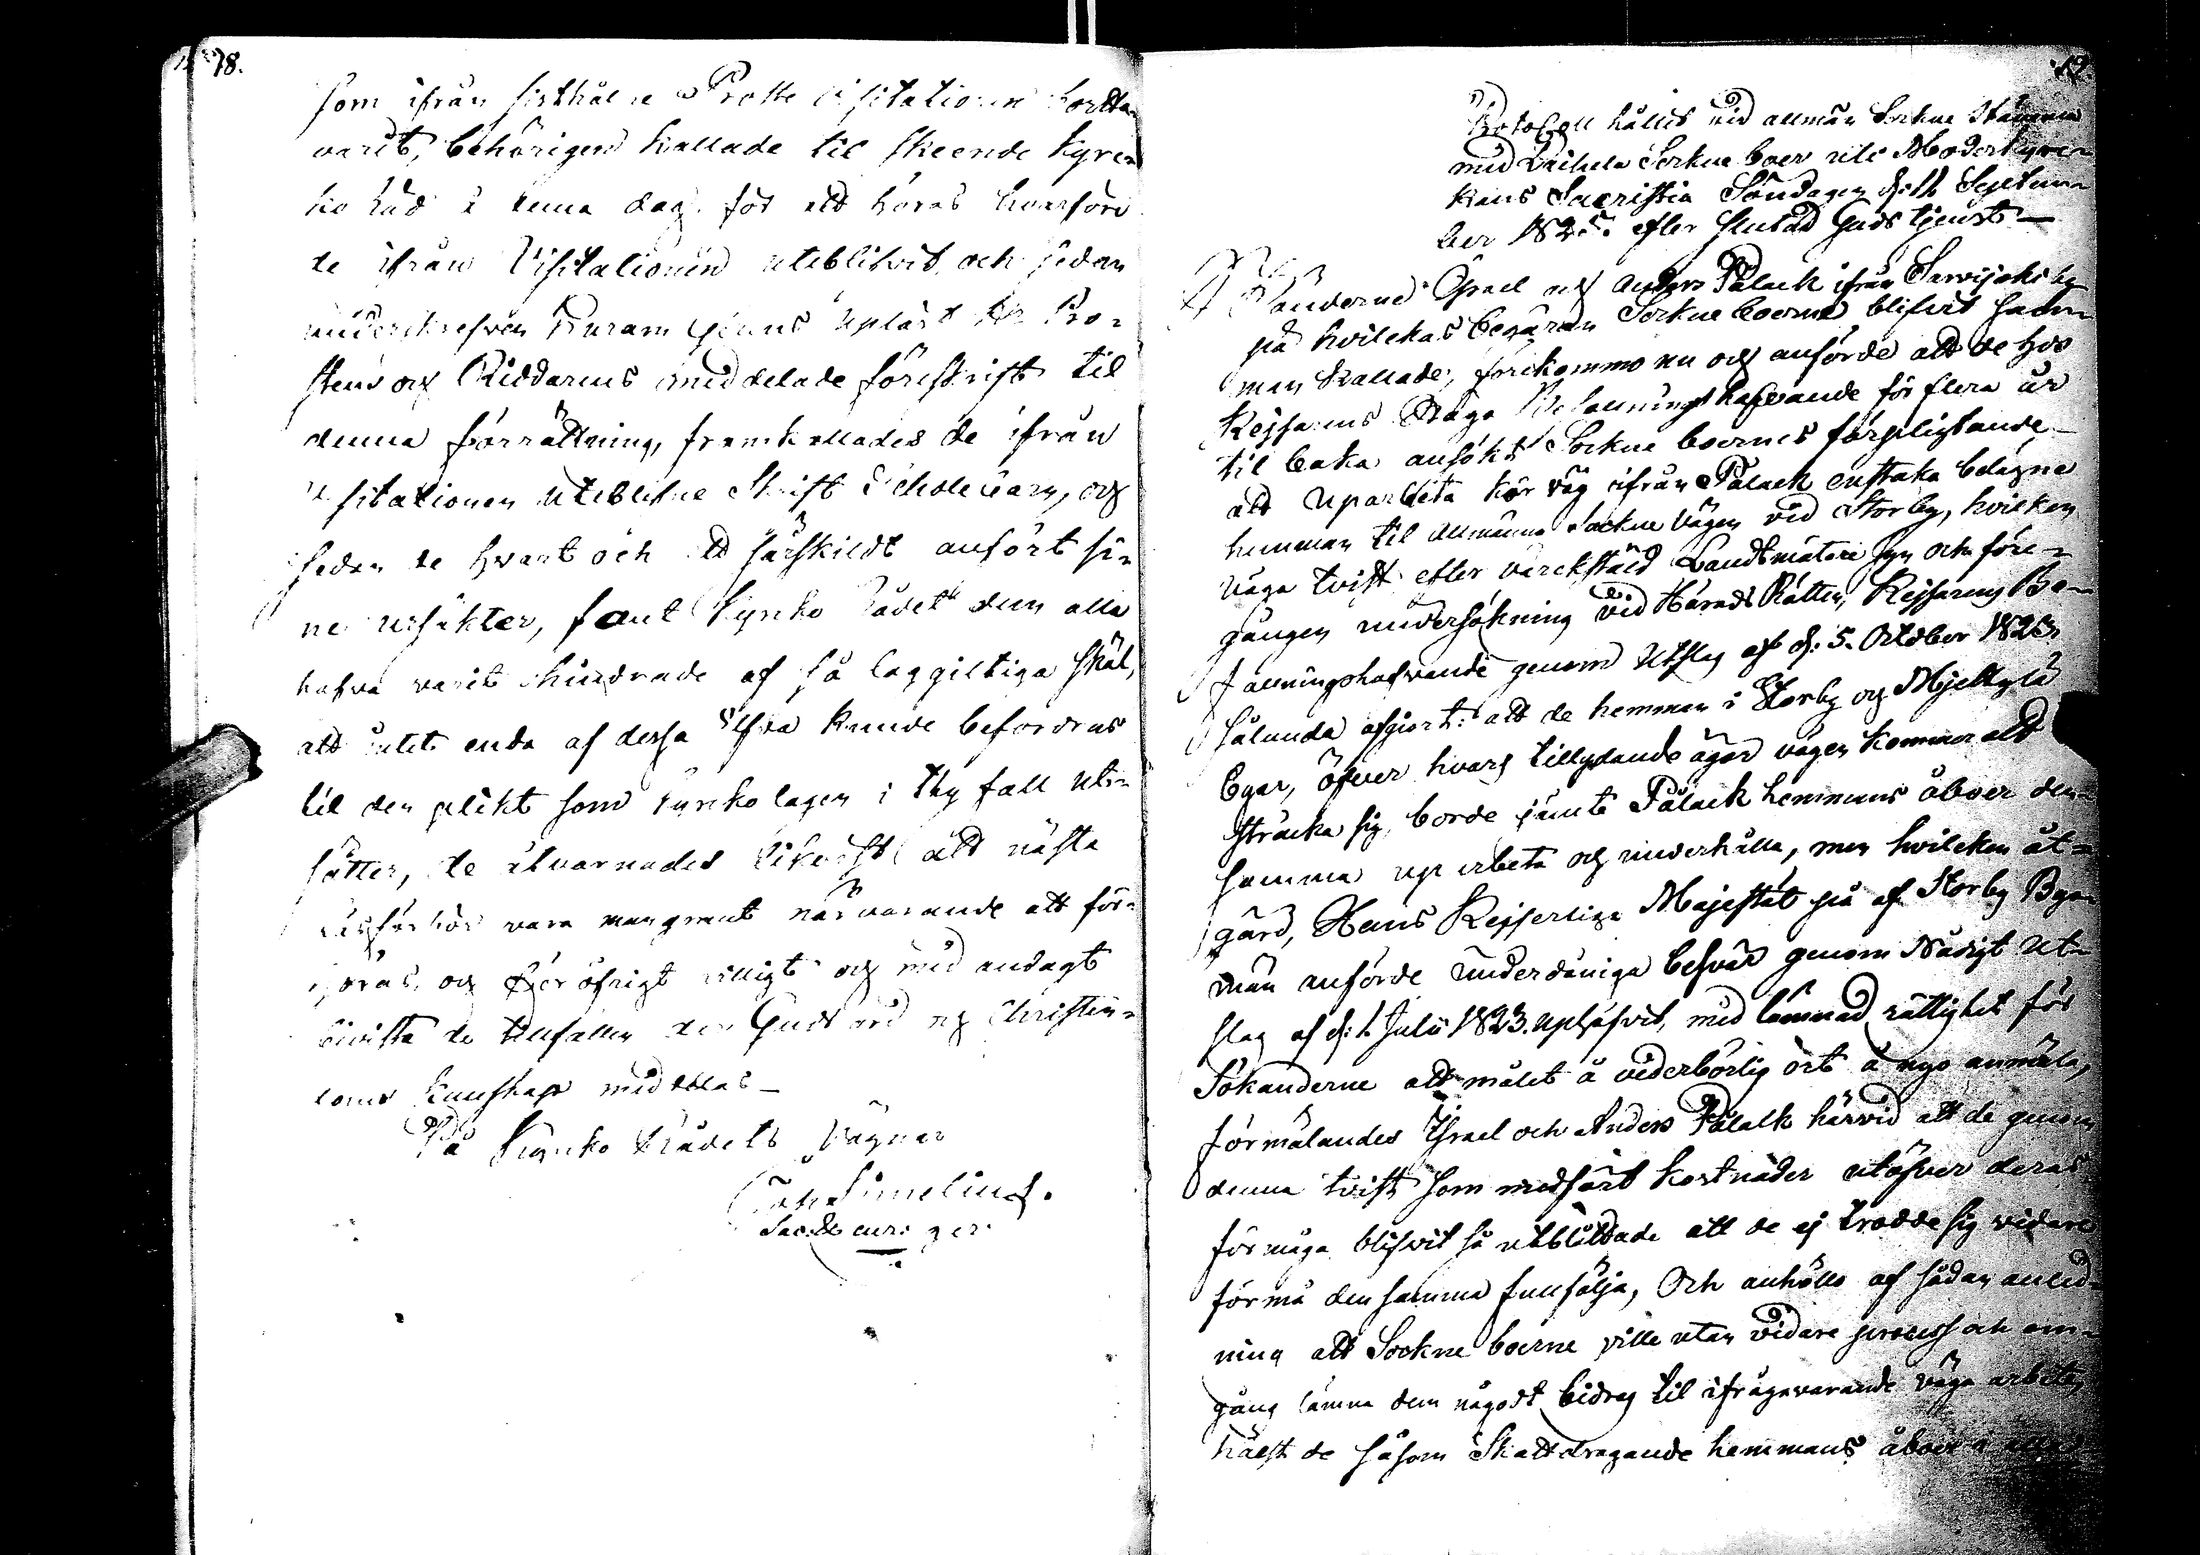 78.
som ifrån sisthålne Prosts Visitationen borta
varit, behörigen kallade til skeende Kyrc-
ko Råd å denna dag, för att höras hvarföre
de ifrån Visitationen uteblifvit, och sedan
underskrefven Curam gerens upläst Hr Pro-
stens och Riddarens meddelade föreskrift til
denna förrättning, framkallades de ifrån
Visitationen uteblifne Skrift Scholebarn, och
sedan de hvart och ett särskildt anfört si-
ne ursäkter, fant Kyrko Rådet dem alla
hafva varit hindrade af så laggiltiga skäl,
att intet enda af dessa kunde befordras
til den plikt som Kyrko lagen i thy fall ut-
sätter, de åtvarnades likväl att nästa
Läsförhör vara mangrant närvarande att för-
höras, och för öfrigt villigt och med andagt
bivista de tillfällen der Guds ord och Christen-
doms kunskap meddelas_
På Kyrko Rådets Vägnar
Joh Simelius.
Sac: & cur: ger:
79.
Protocoll hållit vid allmän Sockne Stämma
med Laihela Sockne boer uti Moderkyrc-
kans Sacristia Söndagen d: 11 Septem-
ber 1825. efter slutad Gudstjenst_
Bönderne Israel och Anders Pålack ifrån Sarvijoki by
på hvilckas begäran Sockneboerne blifvit sam-
man kallade, förekommo nu och anförde att de hos
Kejsarens Höga Befallningshafvande för flera år
til baka ansökt Sockne boernes förpligtande
att uparbeta kör väg ifrån Pålack enstaka belägne
hemman til allmänna Sockne Vägen vid Storby, hvilken
väga tvist efter värckstäld Landtmäteri syn och före-
gången undersökning vid Härads Rätten, Kejsarens Be-
fallningshafvande genom Utslag af d: 5. October 1820.
sålunda afgiort: att de hemman i Storby och Mjellkylä
Byar, öfver hvars tillydande ägor vägen kommer att
sträcka sig, borde jämte Pålack hemmans åboer den-
samma uparbeta och underhålla, men hvilcken åt-
gärd, Hans Kejserliga Majestät på af Storby Bya-
män anförde underdåniga besvär genom Nådigt Ut-
slag af d: 1 Julii 1823. uphäfvit, med lämnad rättighet för
Sökanderne att målet å vederbörlig ort å nyo anmäla,
förmälandes Israel och Anders Pålack härvid att de genom
denna tvist som medfört kostnader utöfver deras
förmåga blifvit så utblottade att de ej trodde sig vidare
förmå densamma fullfölja, och anhöllo af sådan anled-
ning att Sockne boerne ville utan vidare process och om-
gång lämna dem någodt bidrag til ifrågavarande väga arbete,
hälst de såsom Skattdragande hemmans åboer